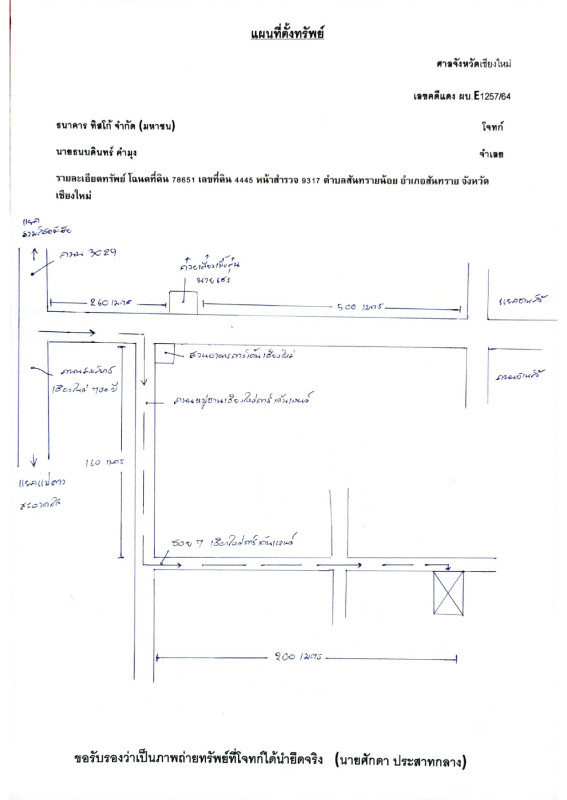 แผนที่ตั้งทรัพย์
ศาลจังหวัดเชียงใหม่
เลขคดีแดง ผบ.E1257/64
ธนาคาร ทิสโก้ จำกัด (มหาชน) โจทก์
นายธนบดินทร์ คำมุง จำเลย
รายละเอียดทรัพย์ โฉนดที่ดิน 78651 เลขที่ดิน 4445 หน้าสำรวจ 9317 ตำบลสันทรายน้อย อำเภอสันทราย จังหวัด
เชียงใหม่
แยก
ถนน 3029
ก๋วยเตี๋ยวเนื้อตุ๋น
นายเฮง
260 เมตร
500 เมตร
สวนอาหาร
เชียงใหม่ 700 ปี
ถนนหมู่บ้านเชียงใหม่การ์เด้นแลนด์
160 เมตร
แยกแม่คาว
ซอย 7 เชียงใหม่การ์เด้นแลนด์
200 เมตร
ขอรับรองว่าเป็นภาพถ่ายทรัพย์ที่โจทก์ได้นำยึดจริง (นายศักดา ประสาทกลาง)